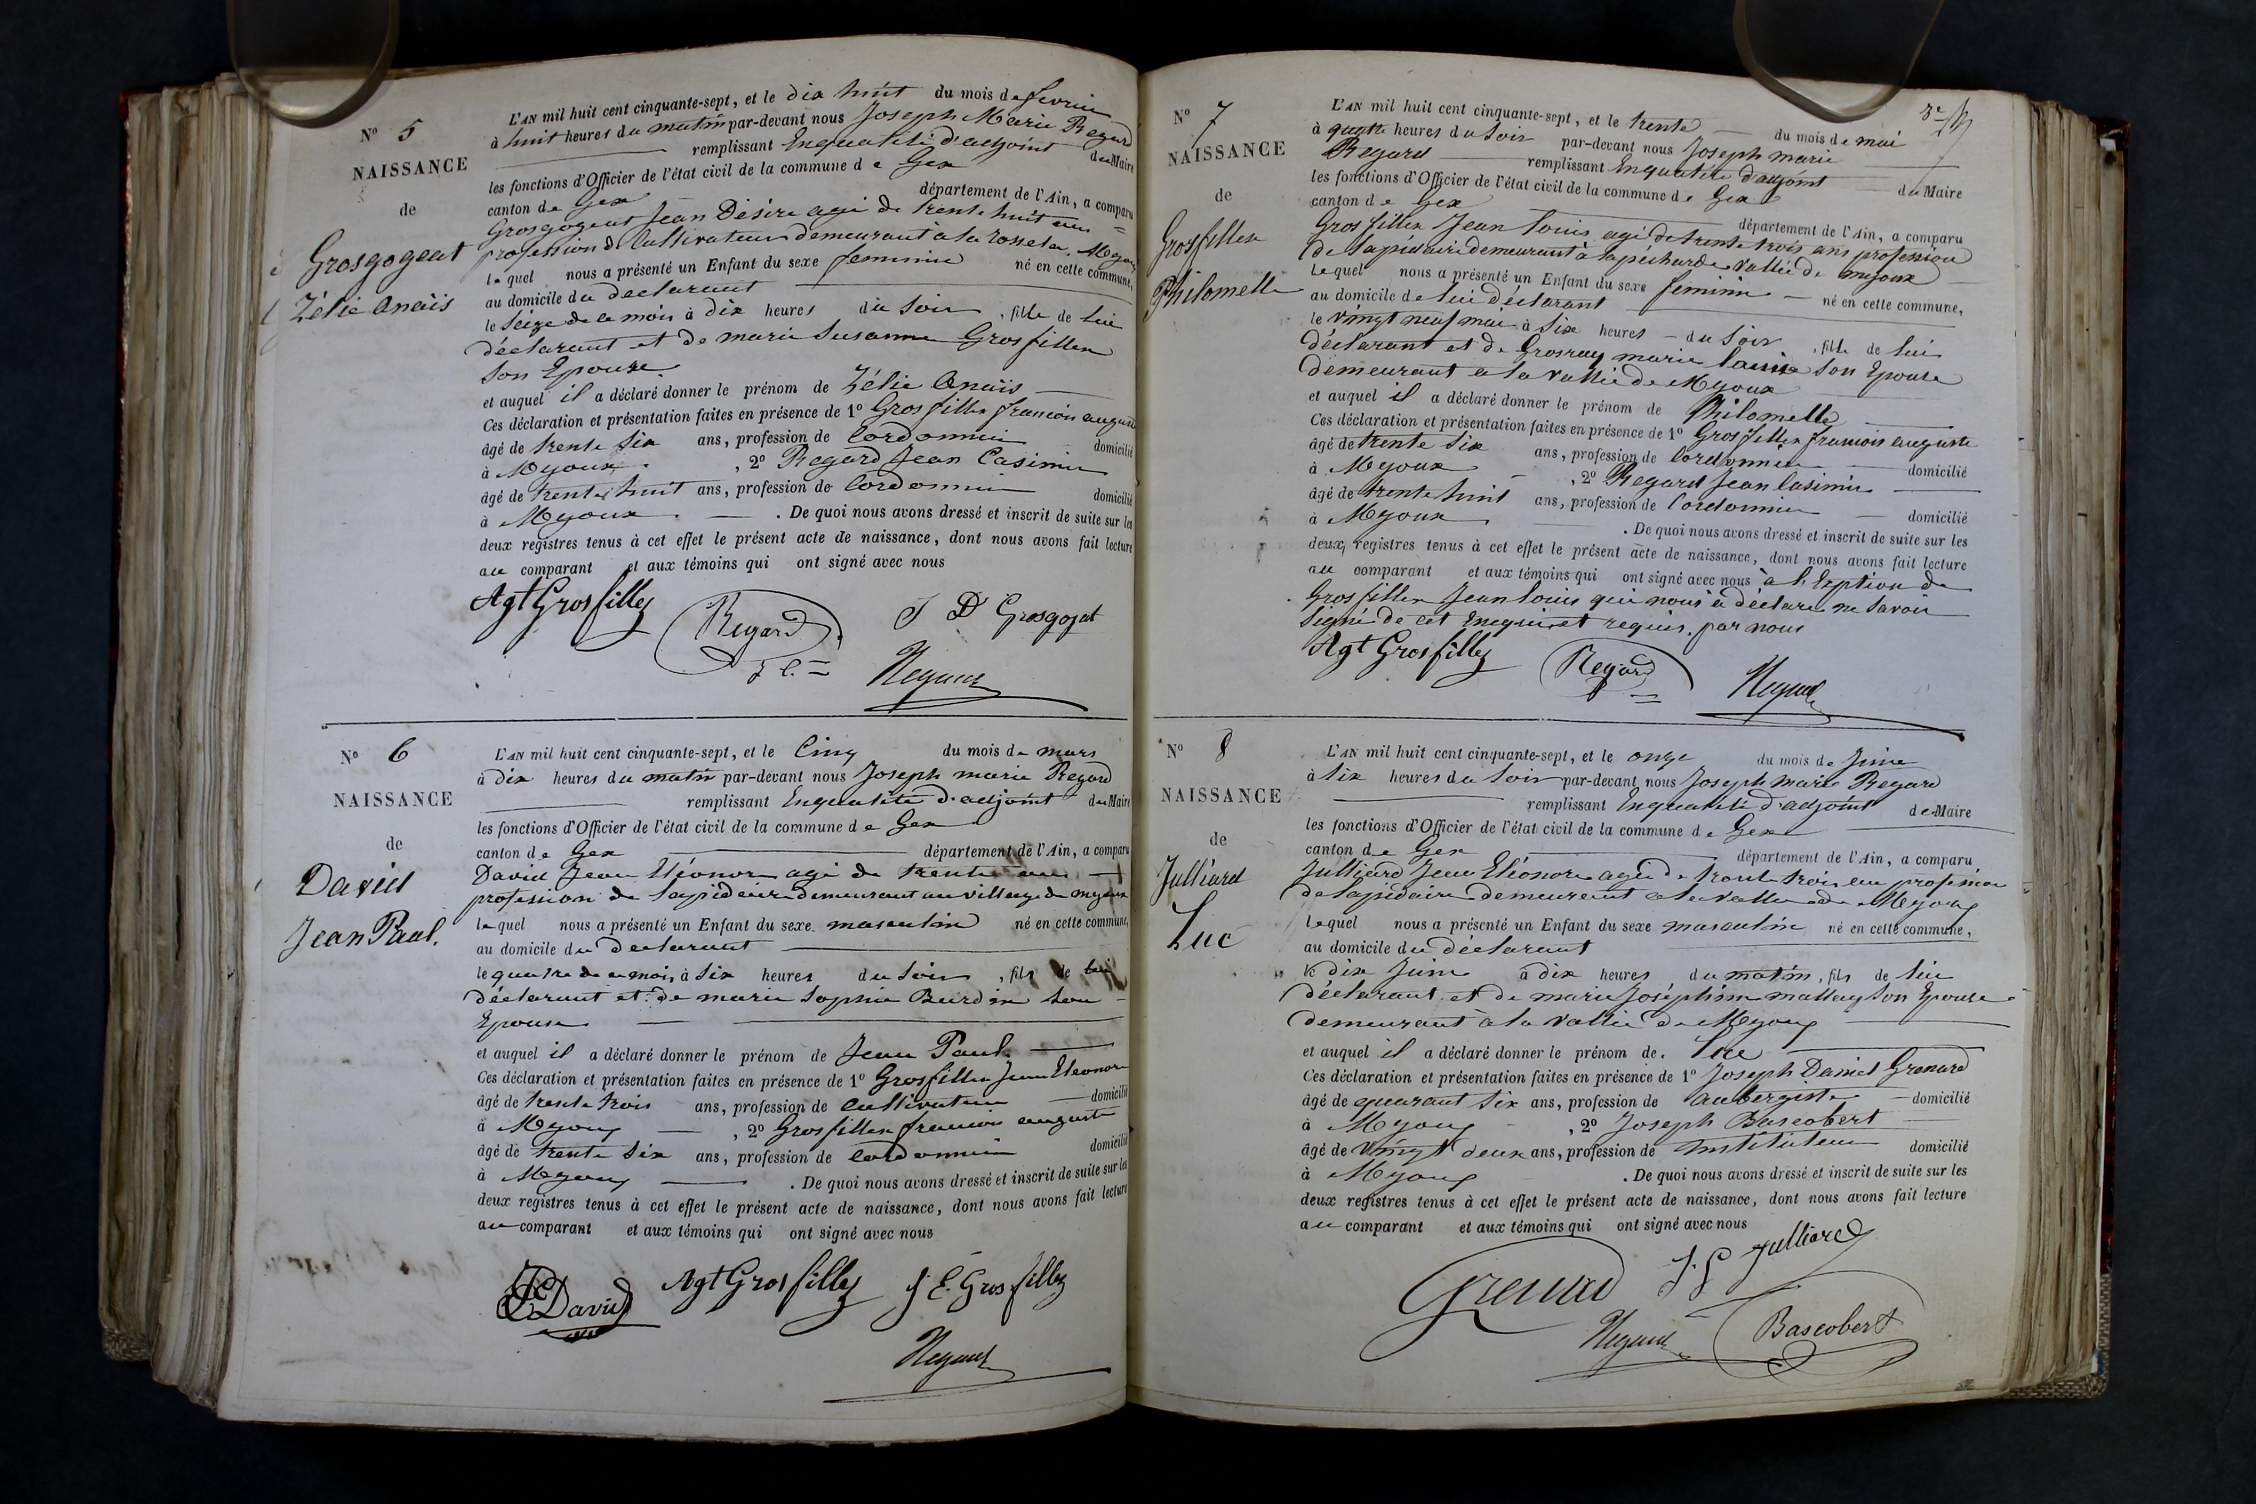 N° 5
NAISSANCE
de
Grosgogeat
Zélie Anaïs
L'AN mil huit cent cinquante-sept, et le dix huit du mois de fevrier
à huit heures du matin par-devant nous Joseph Marie Regard
remplissant Enqualité d'adjoint du Maire
les fonctions d'Officier de l'état civil de la commune de Gex
canton de Gex département de l'Ain, a comparu
Grosgogeat Jean Désire agé de trente huit ans
profession de Cultivateur demeurant a la Mejoux
lequel nous a présenté un Enfant du sexe feminin né en cette commune,
au domicile du declarant
le Seize de ce mois à dix heures du Soir, fille de lui
déclarant et de marie Susanne Grosfilley
Son Epouse
et auquel il a déclaré donner le prénom de Zélie Anaïs
Ces déclaration et présentation faites en présence de 1° Grosfilley francois auguste
âgé de trente six ans, profession de Cordonnier domicilié
à Mejoux, 2° Regard Jean Casimir
âgé de trente huit ans, profession de Cordonnier domicilié
à Mejoux. De quoi nous avons dressé et inscrit de suite sur les
deux registres tenus à cet effet le présent acte de naissance, dont nous avons fait lecture
au comparant et aux témoins qui ont signé avec nous
Agt Grosfilley Regard J D Grosgojat
J C. Regard
N° 6
NAISSANCE
de
David
Jean Paul.
L'AN mil huit cent cinquante-sept, et le Cinq du mois de mars
à dix heures du matin par-devant nous Joseph marie Regard
remplissant Enqualité d'adjoint du Maire
les fonctions d'Officier de l'état civil de la commune de Gex
canton de Gex département de l'Ain, a comparu
David Jean Eléonore agé de trente ans
profession de Lapidaire demeurant au village de mejoux
lequel nous a présenté un Enfant du sexe masculin né en cette commune,
au domicile du declarant
le quatre de ce mois, à six heures du Soir, fils de lui
déclarant et de marie Sophie Burdin Son
Epouse
et auquel il a déclaré donner le prénom de Jean Paul.
Ces déclaration et présentation faites en présence de 1° Grosfilley Jean Eleonore
âgé de trente trois ans, profession de cultivateur domicilié
à Mejoux, 2° Grosfilley francois auguste
âgé de trente six ans, profession de Cordonnier domicilié
à Mejoux. De quoi nous avons dressé et inscrit de suite sur les
deux registres tenus à cet effet le présent acte de naissance, dont nous avons fait lecture
au comparant et aux témoins qui ont signé avec nous
David Agt Grosfilley J E. Grosfilley
Regard
N° 7
NAISSANCE
de
Grosfilley
Philomelle
L'AN mil huit cent cinquante-sept, et le trente du mois de mai
à quatre heures du Soir par-devant nous Joseph marie
Regard remplissant Enqualité d'adjoint du Maire
les fonctions d'Officier de l'état civil de la commune de Gex
canton de Gex département de l'Ain, a comparu
Grosfilley Jean Louis agé de trente trois ans profession
de Lapidaire demeurant à la vallée de mejoux
lequel nous a présenté un Enfant du sexe feminin né en cette commune,
au domicile de lui déclarant
le vingt neuf mai à Six heures du Soir, fille de lui
déclarant et de Grosrey marie Louise Son Epouse
demeurant a la vallée de Mejoux
et auquel il a déclaré donner le prénom de Philomelle
Ces déclaration et présentation faites en présence de 1° Grosfilley francois auguste
âgé de trente six ans, profession de Cordonnier domicilié
à Mejoux, 2° Regard Jean Casimir
âgé de trente huit ans, profession de Cordonnier domicilié
à Mejoux. De quoi nous avons dressé et inscrit de suite sur les
deux registres tenus à cet effet le présent acte de naissance, dont nous avons fait lecture
au comparant et aux témoins qui ont signé avec nous à l'Exption de
Grosfilley Jean Louis qui nous a déclaré ne Savoir
Signé de cet Enquis et requis par nous
Agt Grosfilley Regard Regard
N° 8
NAISSANCE
de
Julliard
Luc
L'AN mil huit cent cinquante-sept, et le onze du mois de Juin
à six heures du Soir par-devant nous Joseph marie Regard
remplissant Enqualité d'adjoint de Maire
les fonctions d'Officier de l'état civil de la commune de Gex
canton de Gex département de l'Ain, a comparu
Julliard Jean Eléonore agé de trente trois ans profession
de Lapidaire demeurant a la vallee de Mejoux
lequel nous a présenté un Enfant du sexe masculin né en cette commune,
au domicile du déclarant
le dix Juin à dix heures du matin, fils de lui
déclarant et de marie Joséphine mattey Son Epouse
demeurant à la vallée de Mejoux
et auquel il a déclaré donner le prénom de Luc
Ces déclaration et présentation faites en présence de 1° Joseph Daniel Grenard
âgé de quarant six ans, profession de aubergiste domicilié
à Mejoux, 2° Joseph Bascobert
âgé de vingt deux ans, profession de Instituteur domicilié
à Mejoux. De quoi nous avons dressé et inscrit de suite sur les
deux registres tenus à cet effet le présent acte de naissance, dont nous avons fait lecture
au comparant et aux témoins qui ont signé avec nous
Grenard J. E Julliard
Regard Bascobert